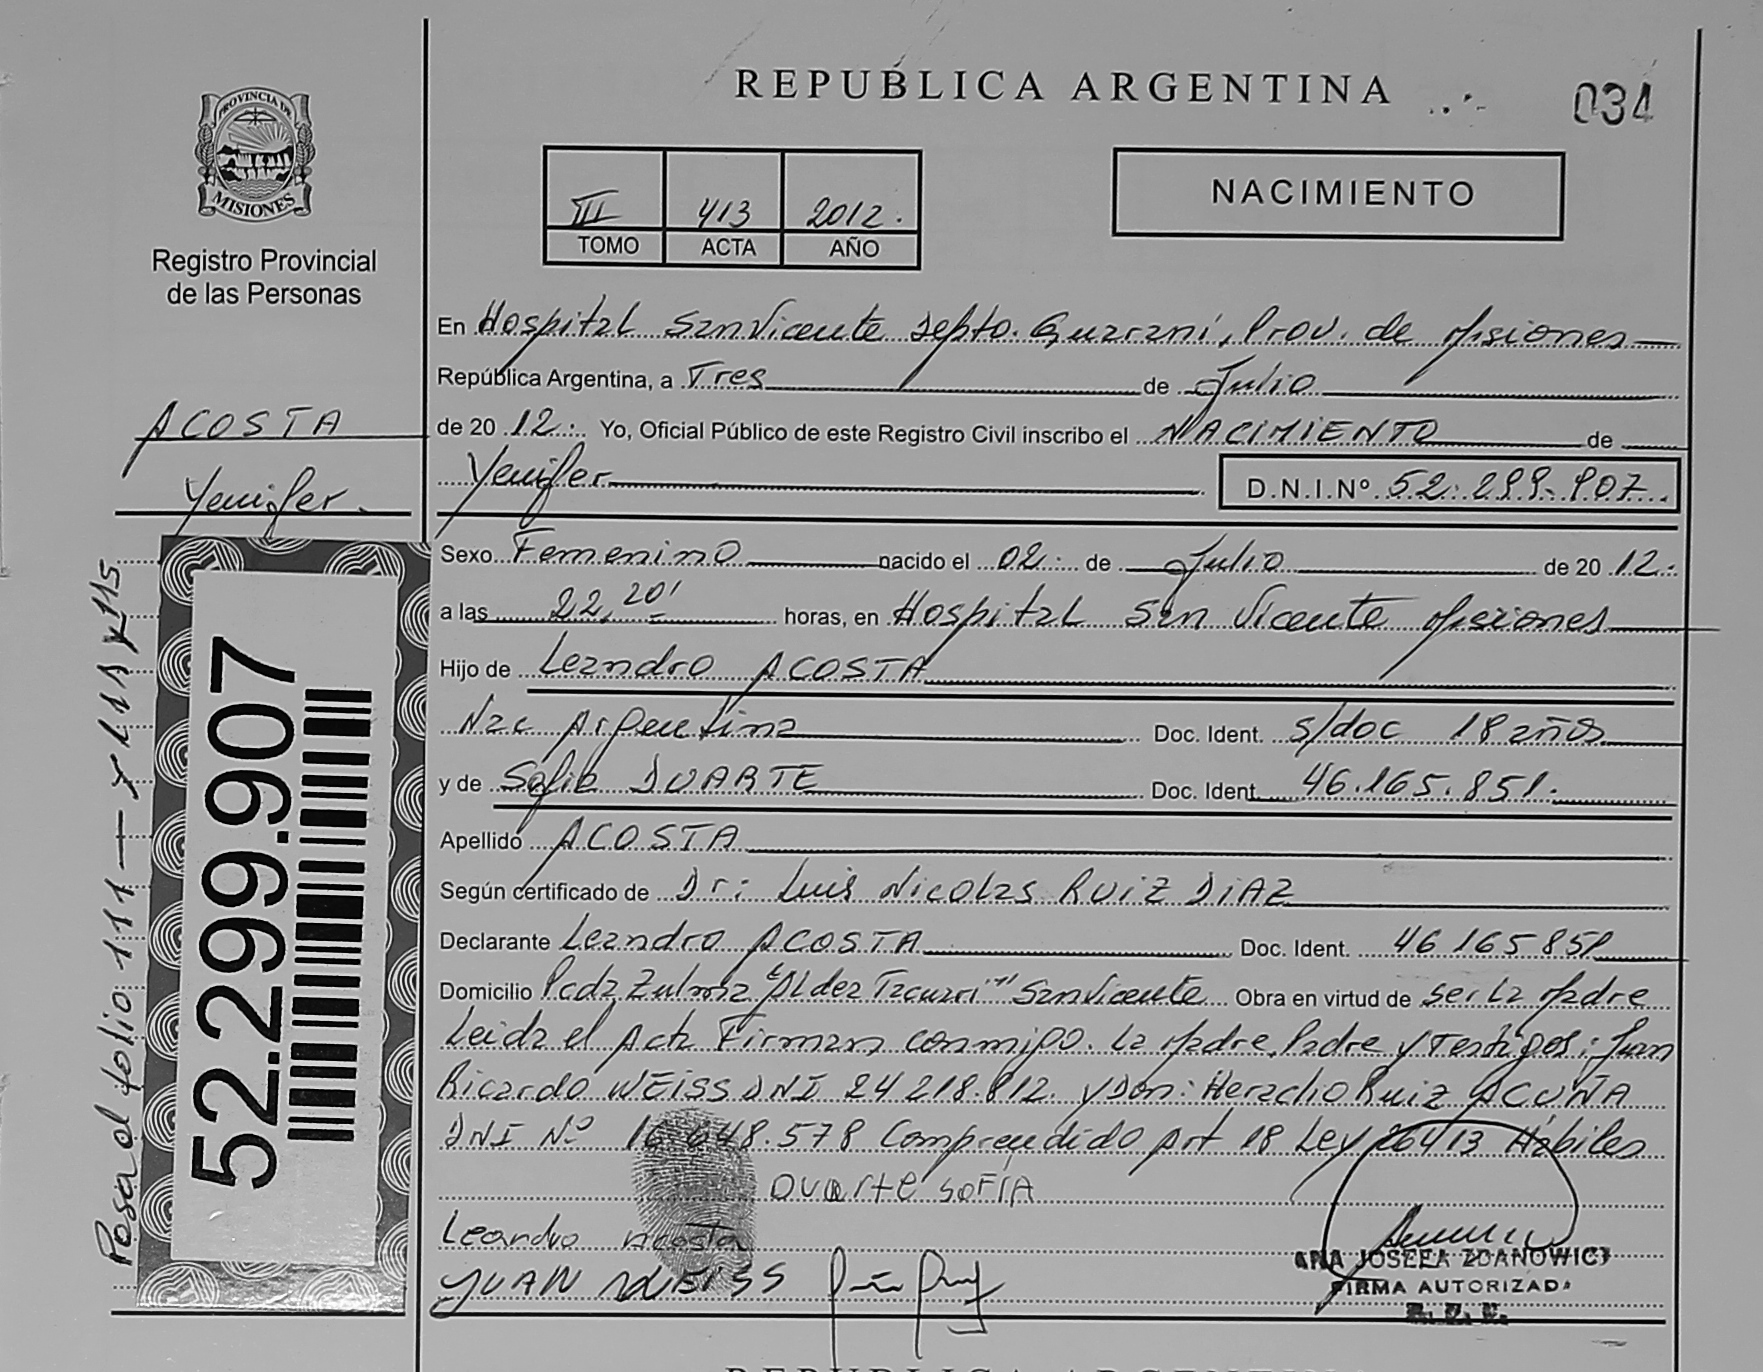 REPUBLICA ARGENTINA
034
PROVINCIA DE
MISIONES
Registro Provincial
de las Personas
III 413 2012.
TOMO ACTA AÑO
NACIMIENTO
En Hospital San Vicente Depto. Guarani, Prov. de Misiones
República Argentina, a Tres de Julio
de 20 12. Yo, Oficial Público de este Registro Civil inscribo el NACIMIENTO de
Yenifer D.N.I.Nº 52.299.907.
ACOSTA
Yenifer.
Sexo Femenino nacido el 02 de Julio de 20 12.
a las 22,20' horas, en Hospital San Vicente Misiones
Hijo de Leandro ACOSTA
Nac Argentina Doc. Ident. s/doc 18 años
y de Sofia DUARTE Doc. Ident. 46.165.851.
Apellido ACOSTA
Según certificado de Dr: Luis Nicolas RUIZ DIAZ
Declarante Leandro ACOSTA Doc. Ident. 46 165 851
Domicilio Pcda Zulma "Aldea Tacuari" San Vicente Obra en virtud de ser La Madre
Leida el Acta Firman conmigo. La Madre, Padre y Testigos: Juan
Ricardo WEISS DNI 24 218.812. y Don: Heraclio Ruiz ACUÑA
DNI Nº 16.648.578 Comprendido Art 18 Ley 26413 Hábiles
DUARTE SOFÍA
Leandro Acosta
JUAN WEISS
ANA JOSEFA ZDANOWICZ
FIRMA AUTORIZADA
52.299.907
Pasa al folio 111
REPUBLICA ARGENTINA